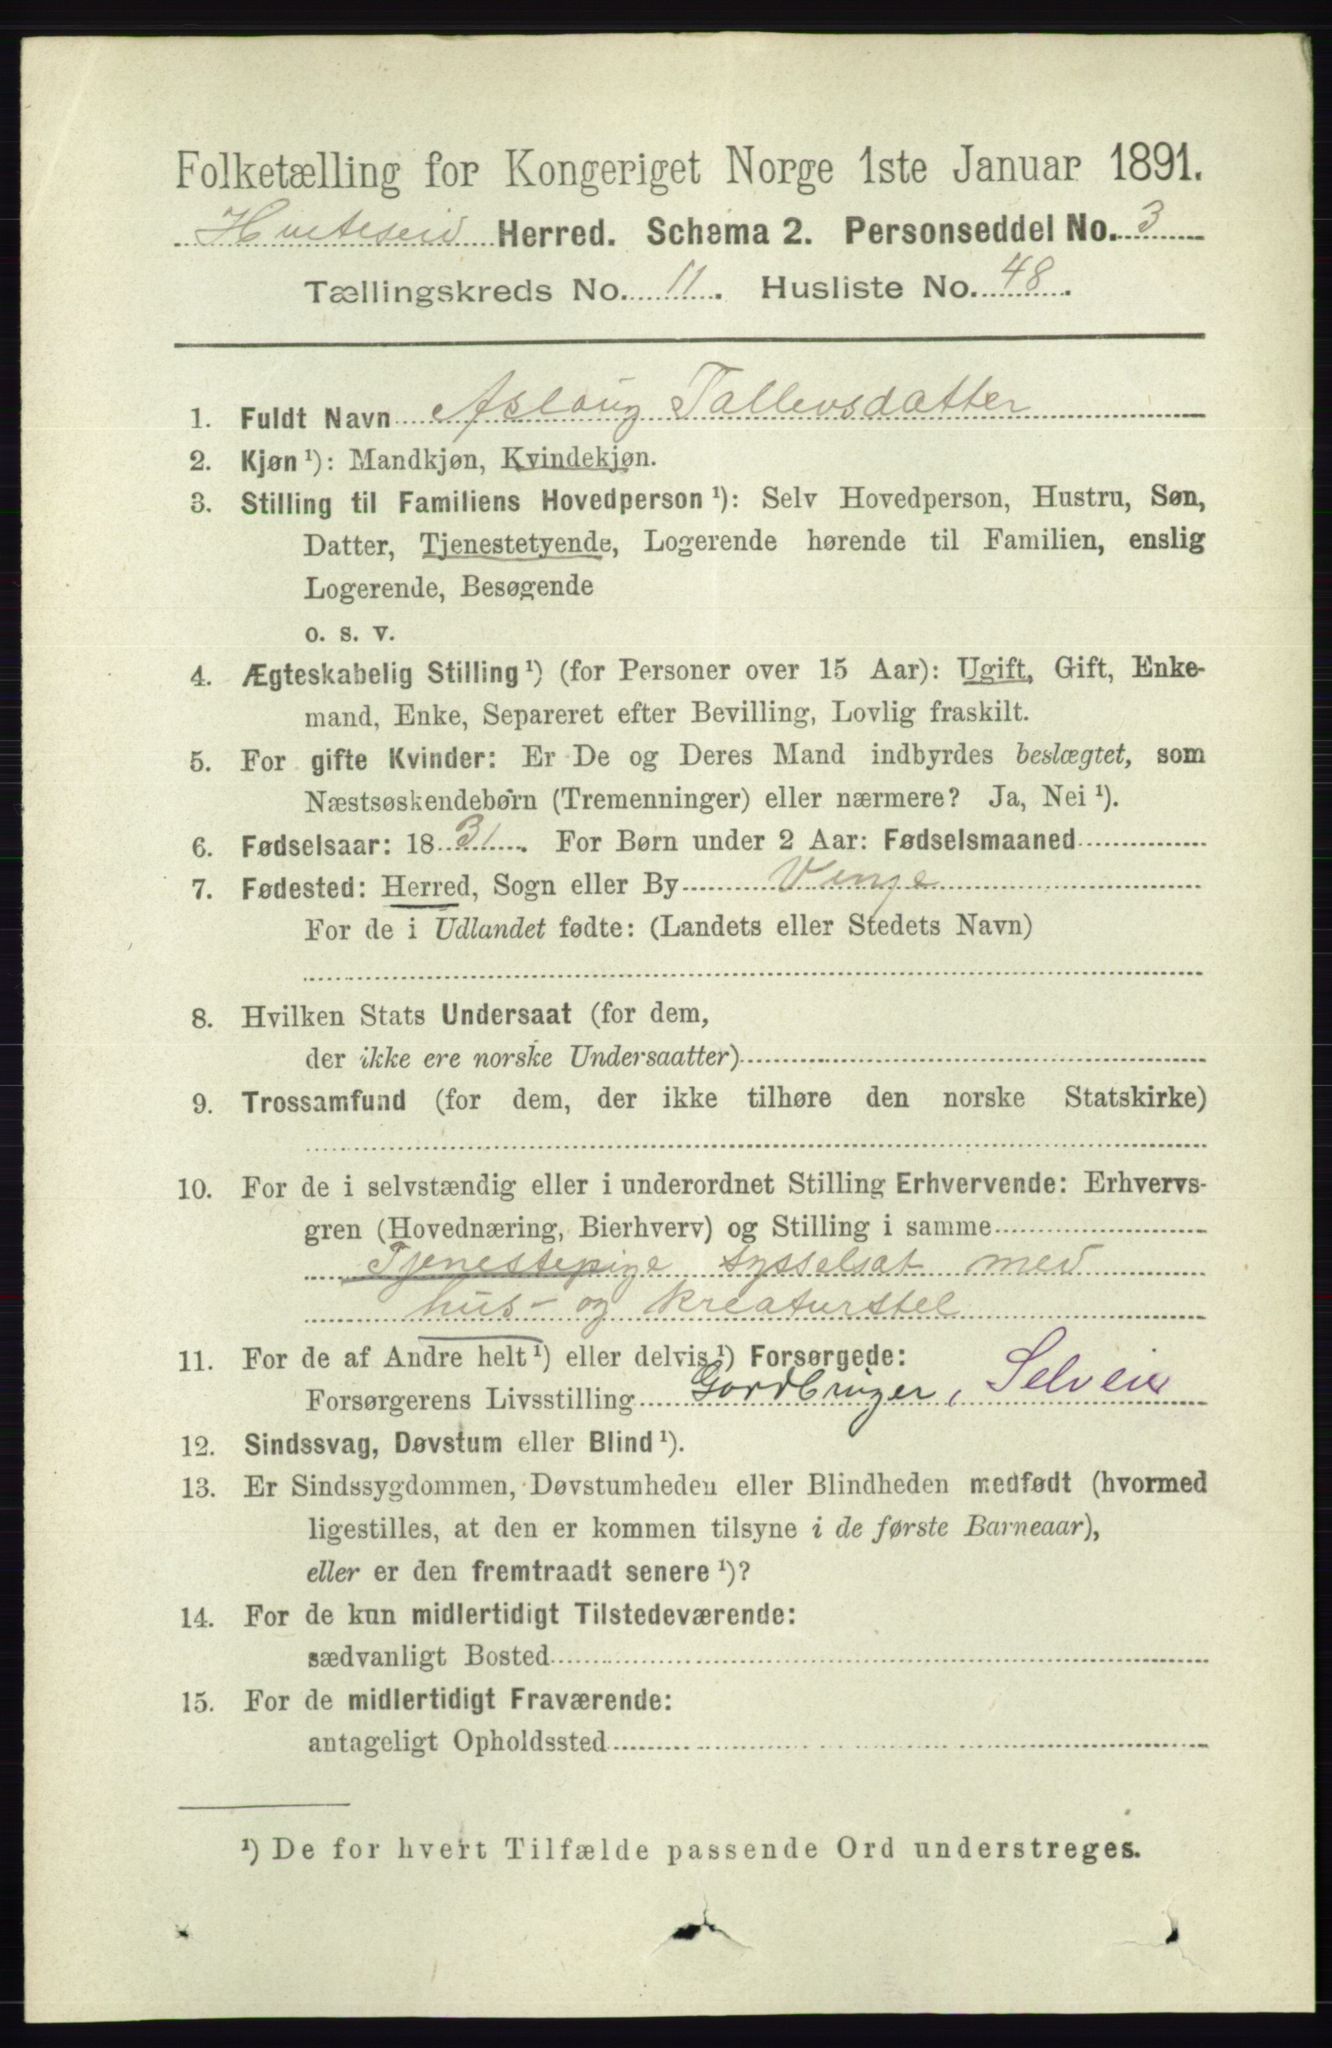 Folketælling for Kongeriget Norge 1ste Januar 1891.
Hviteseid Herred. Schema 2. Personseddel No. 3
Tællingskreds No. 11. Husliste No. 48.
1. Fuldt Navn Aslaug Tallevsdatter
2. Kjøn ¹): Mandkjøn, Kvindekjøn.
3. Stilling til Familiens Hovedperson ¹): Selv Hovedperson, Hustru, Søn,
Datter, Tjenestetyende, Logerende hørende til Familien, enslig
Logerende, Besøgende
o. s. v.
4. Ægteskabelig Stilling ¹) (for Personer over 15 Aar): Ugift, Gift, Enke-
mand, Enke, Separeret efter Bevilling, Lovlig fraskilt.
5. For gifte Kvinder: Er De og Deres Mand indbyrdes beslægtet, som
Næstsøskendebørn (Tremenninger) eller nærmere? Ja, Nei ¹).
6. Fødselsaar: 1831. For Børn under 2 Aar: Fødselsmaaned
7. Fødested: Herred, Sogn eller By Vinje
For de i Udlandet fødte: (Landets eller Stedets Navn)
8. Hvilken Stats Undersaat (for dem,
der ikke ere norske Undersaatter)
9. Trossamfund (for dem, der ikke tilhøre den norske Statskirke)
10. For de i selvstændig eller i underordnet Stilling Erhvervende: Erhvervs-
gren (Hovednæring, Bierhverv) og Stilling i samme
Tjenestepige sysselsat med
hus- og kreaturstel
11. For de af Andre helt ¹) eller delvis ¹) Forsørgede:
Forsørgerens Livsstilling Gordbruger, Selveier
12. Sindssvag, Døvstum eller Blind ¹).
13. Er Sindssygdommen, Døvstumheden eller Blindheden medfødt (hvormed
ligestilles, at den er kommen tilsyne i de første Barneaar),
eller er den fremtraadt senere ¹)?
14. For de kun midlertidigt Tilstedeværende:
sædvanligt Bosted
15. For de midlertidigt Fraværende:
antageligt Opholdssted
¹) De for hvert Tilfælde passende Ord understreges.